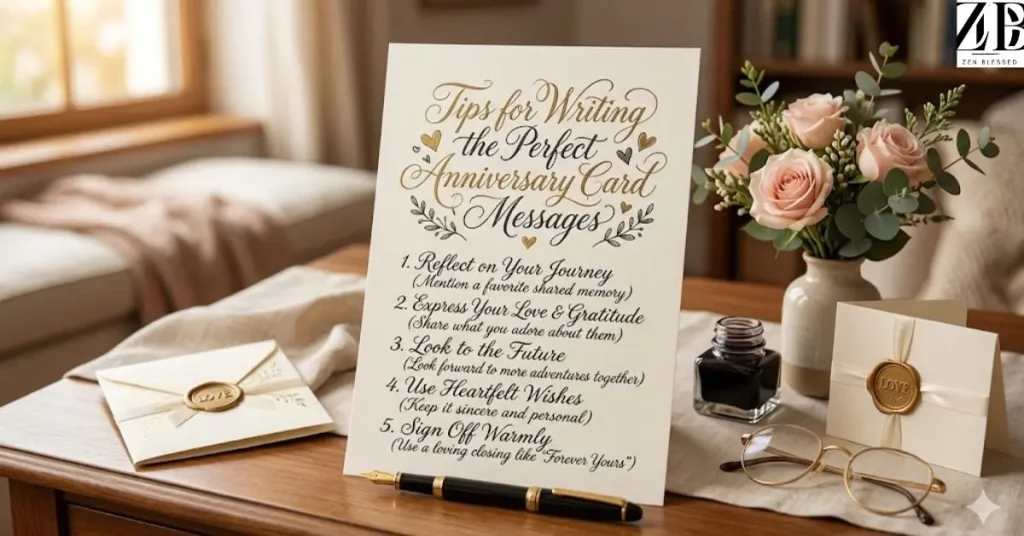 ZB
ZEN BLESSED
Tips for Writing
the Perfect
Anniversary Card
Messages
1. Reflect on Your Journey
(Mention a favorite shared memory)
2. Express Your Love & Gratitude
(Share what you adore about them)
3. Look to the Future
(Look forward to more adventures together)
4. Use Heartfelt Wishes
(Keep it sincere and personal)
5. Sign Off Warmly
(Use a loving closing like "Forever Yours")
LOVE
LOVE